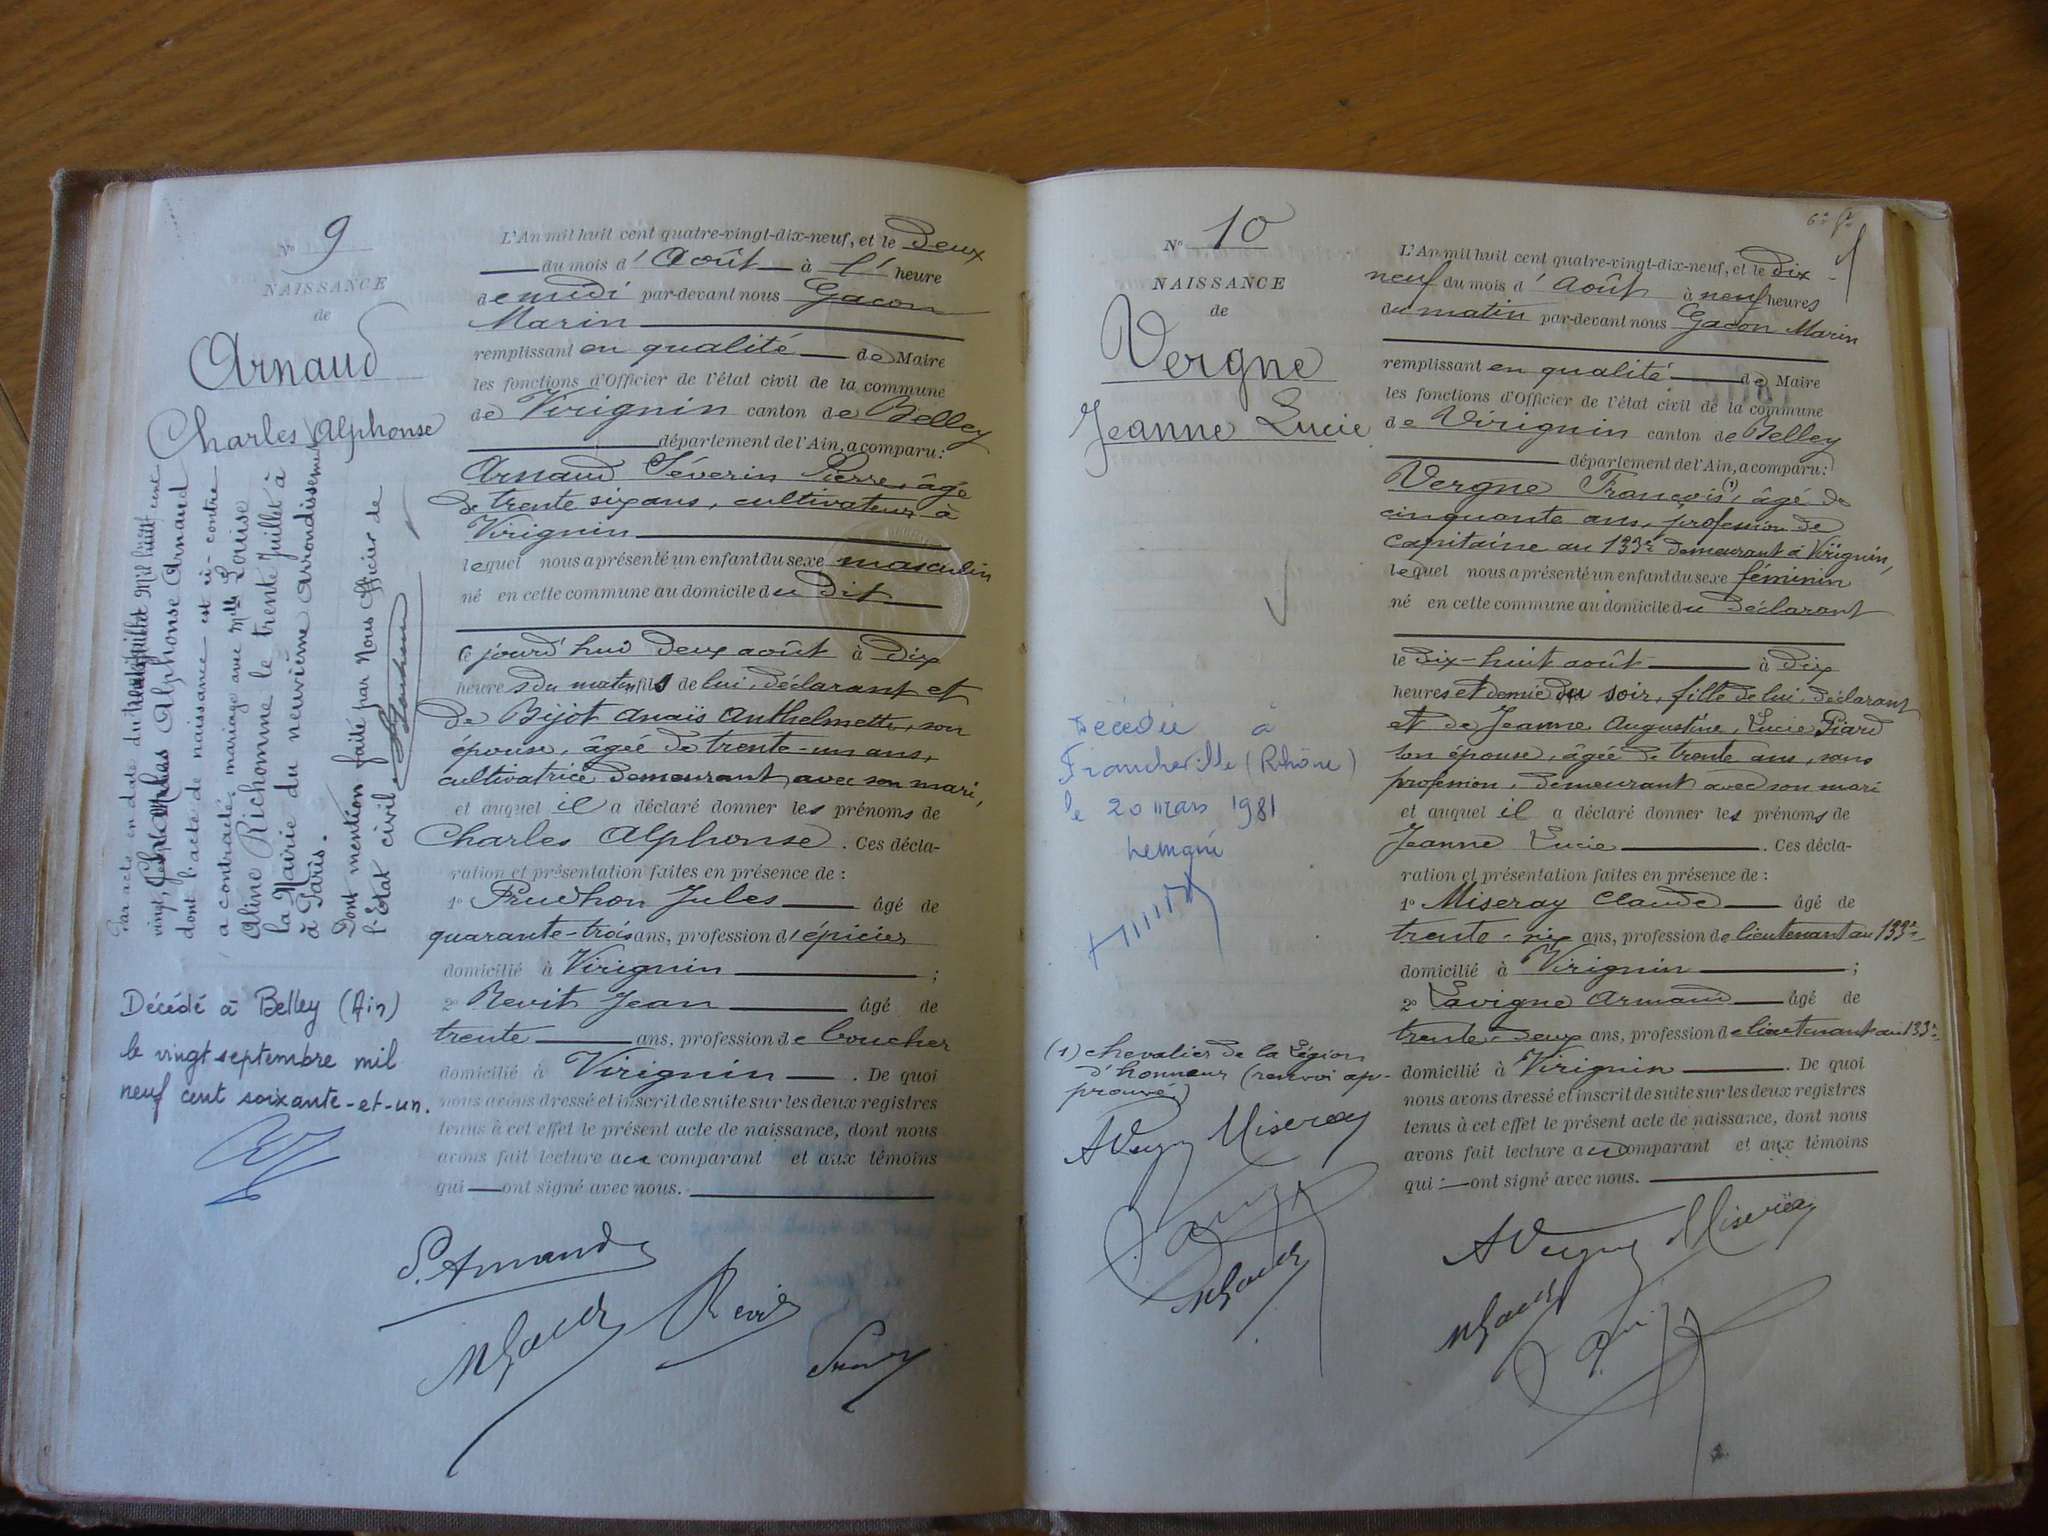 N° 9
NAISSANCE
de
Arnaud
Charles Alphonse
Par acte en date du
vingt, Alphonse Arnaud
dont l'acte de naissance est ci-contre
a contracté mariage avec Mlle Louise
Aline Richomme le trente Juillet à
la Mairie du neuvième arrondissement
à Paris.
Dont mention faite par Nous Officier de
l'Etat civil
Décédé à Belley (Ain)
le vingt septembre mil
neuf cent soixante-et-un.
L'An mil huit cent quatre-vingt-dix-neuf, et le Deux
du mois d'Août à l'heure
de midi par-devant nous Gacon
Marin
remplissant en qualité de Maire
les fonctions d'Officier de l'état civil de la commune
de Virignin canton de Belley
département de l'Ain, a comparu:
Arnaud Séverin Pierre, âgé
de trente six ans, cultivateur à
Virignin
lequel nous a présenté un enfant du sexe masculin
né en cette commune au domicile du dit
Ce jourd'hui deux août à dix
heures du matin fils de lui, déclarant et
de Bijot Anaïs Anthelmette, son
épouse, âgée de trente-un ans,
cultivatrice demeurant avec son mari,
et auquel il a déclaré donner les prénoms de
Charles Alphonse. Ces décla-
ration et présentation faites en présence de :
1° Prudhon Jules âgé de
quarante-trois ans, profession d'épicier
domicilié à Virignin ;
2° Revit Jean âgé de
trente ans, profession de boucher
domicilié à Virignin. De quoi
nous avons dressé et inscrit de suite sur les deux registres
tenus à cet effet le présent acte de naissance, dont nous
avons fait lecture au comparant et aux témoins
qui ont signé avec nous.
S. Arnaud
MGacon Revit
N° 10
NAISSANCE
de
Vergne
Jeanne Lucie
Décédée à
Francheville (Rhône)
le 20 mars 1981
(1) chevalier de la Légion
d'honneur (renvoi ap-
prouvé)
AVergne Miseray
MGacon
L'An mil huit cent quatre-vingt-dix-neuf, et le dix
neuf du mois d'Août à neuf heures
du matin par-devant nous Gacon Marin
remplissant en qualité de Maire
les fonctions d'Officier de l'état civil de la commune
de Virignin canton de Belley
département de l'Ain, a comparu:
Vergne François (1), âgé de
cinquante ans, profession de
capitaine au 133e demeurant à Virignin,
lequel nous a présenté un enfant du sexe féminin
né en cette commune au domicile du déclarant
le dix-huit août à dix
heures et demie du soir, fille de lui, déclarant
et de Jeanne Augustine, Lucie Piard
son épouse, âgée de trente ans, sans
profession, demeurant avec son mari
et auquel il a déclaré donner les prénoms de
Jeanne Lucie. Ces décla-
ration et présentation faites en présence de :
1° Miseray Claude âgé de
trente-six ans, profession de lieutenant au 133e
domicilié à Virignin ;
2° Lavigne Armand âgé de
trente-deux ans, profession de lieutenant au 133e
domicilié à Virignin. De quoi
nous avons dressé et inscrit de suite sur les deux registres
tenus à cet effet le présent acte de naissance, dont nous
avons fait lecture au comparant et aux témoins
qui ont signé avec nous.
AVergne Miseray
MGacon